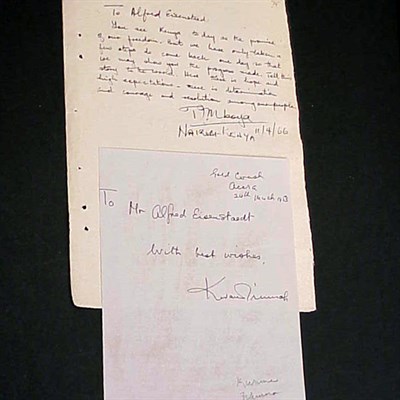 To Alfred Eisenstaed.
You see Kenya today is the promise
of our freedom. But we have only taken
few steps so come back one day so that
we may show you the progress made. Tell this
story to the world. Here there is hope and
high expectations - there is determination
and courage and resolution among our people
TJMboya
Nairobi-Kenya 11/4/60
Gold Coast
Accra
24th March
To
Mr Alfred Eisenstaedt
With best wishes,
Kwame Nkrumah
Kwame